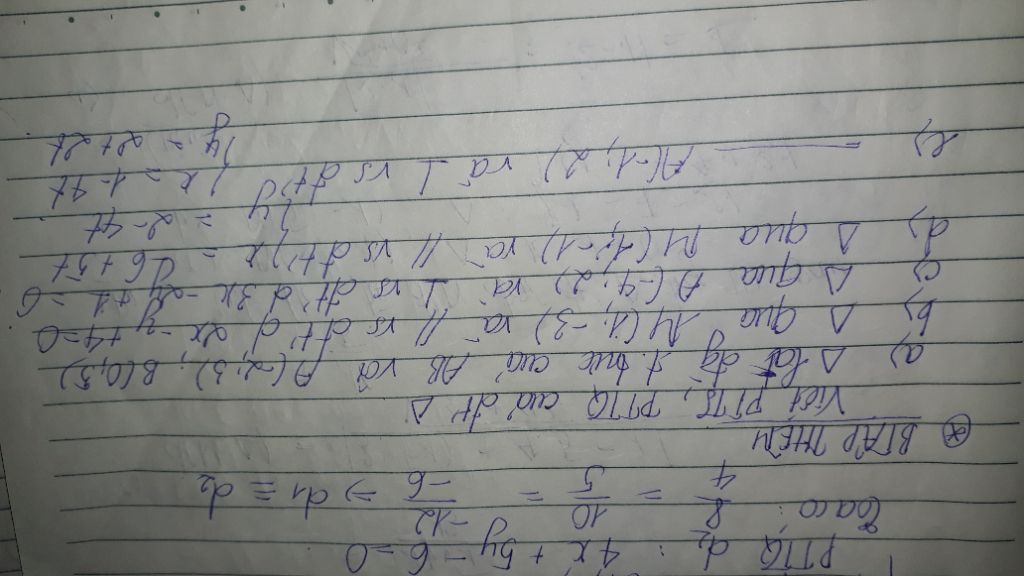 PTTQ d₂ : 4x + 5y - 6 = 0
Ta có : 8/4 = 10/5 = -12/-6 => d₁ ≡ d₂
⊛ BTẬP THÊM
Viết PTTS, PTTQ của đt' Δ
a) Δ là đg t. trực của AB với A(-2, 3) ; B(0, 5)
b) Δ qua M(1; -3) và // vs đt' d 2x - y + 4 = 0
c) Δ qua A(-4; 2) và ⊥ vs đt' d 3x - 2y + 1 = 0
d) Δ qua M(1; -1) và // vs đt' { x = 6 + 5t
{ y = 2 - 4t
e) ——— A(-1; 2) và ⊥ vs đt' { x = 1 - 4t
{ y = 2 + 2t